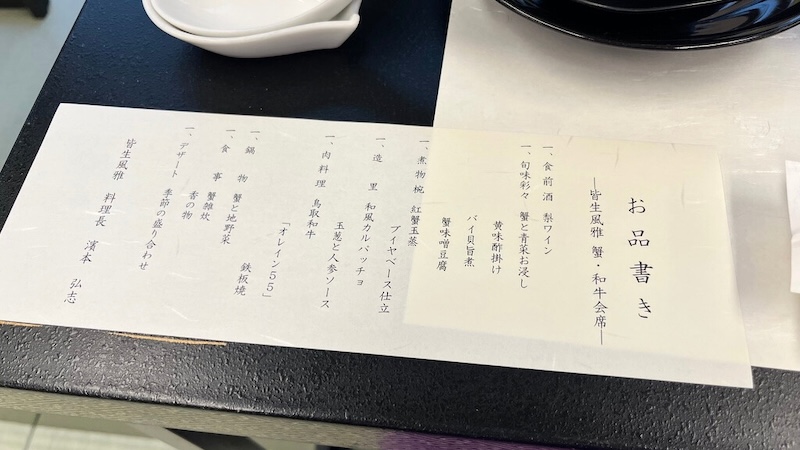 お品書き
―皆生風雅 蟹・和牛会席―
一、食前酒 梨ワイン
一、旬味彩々 蟹と青菜お浸し
黄味酢掛け
バイ貝旨煮
蟹味噌豆腐
一、煮物椀 紅蟹玉蒸
ブイヤベース仕立
一、造里 和風カルパッチョ
玉葱と人参ソース
一、肉料理 鳥取和牛
「オレイン55」
鉄板焼
一、鍋物 蟹と地野菜
一、食事 蟹雑炊
香の物
一、デザート 季節の盛り合わせ
皆生風雅 料理長 濱本 弘志